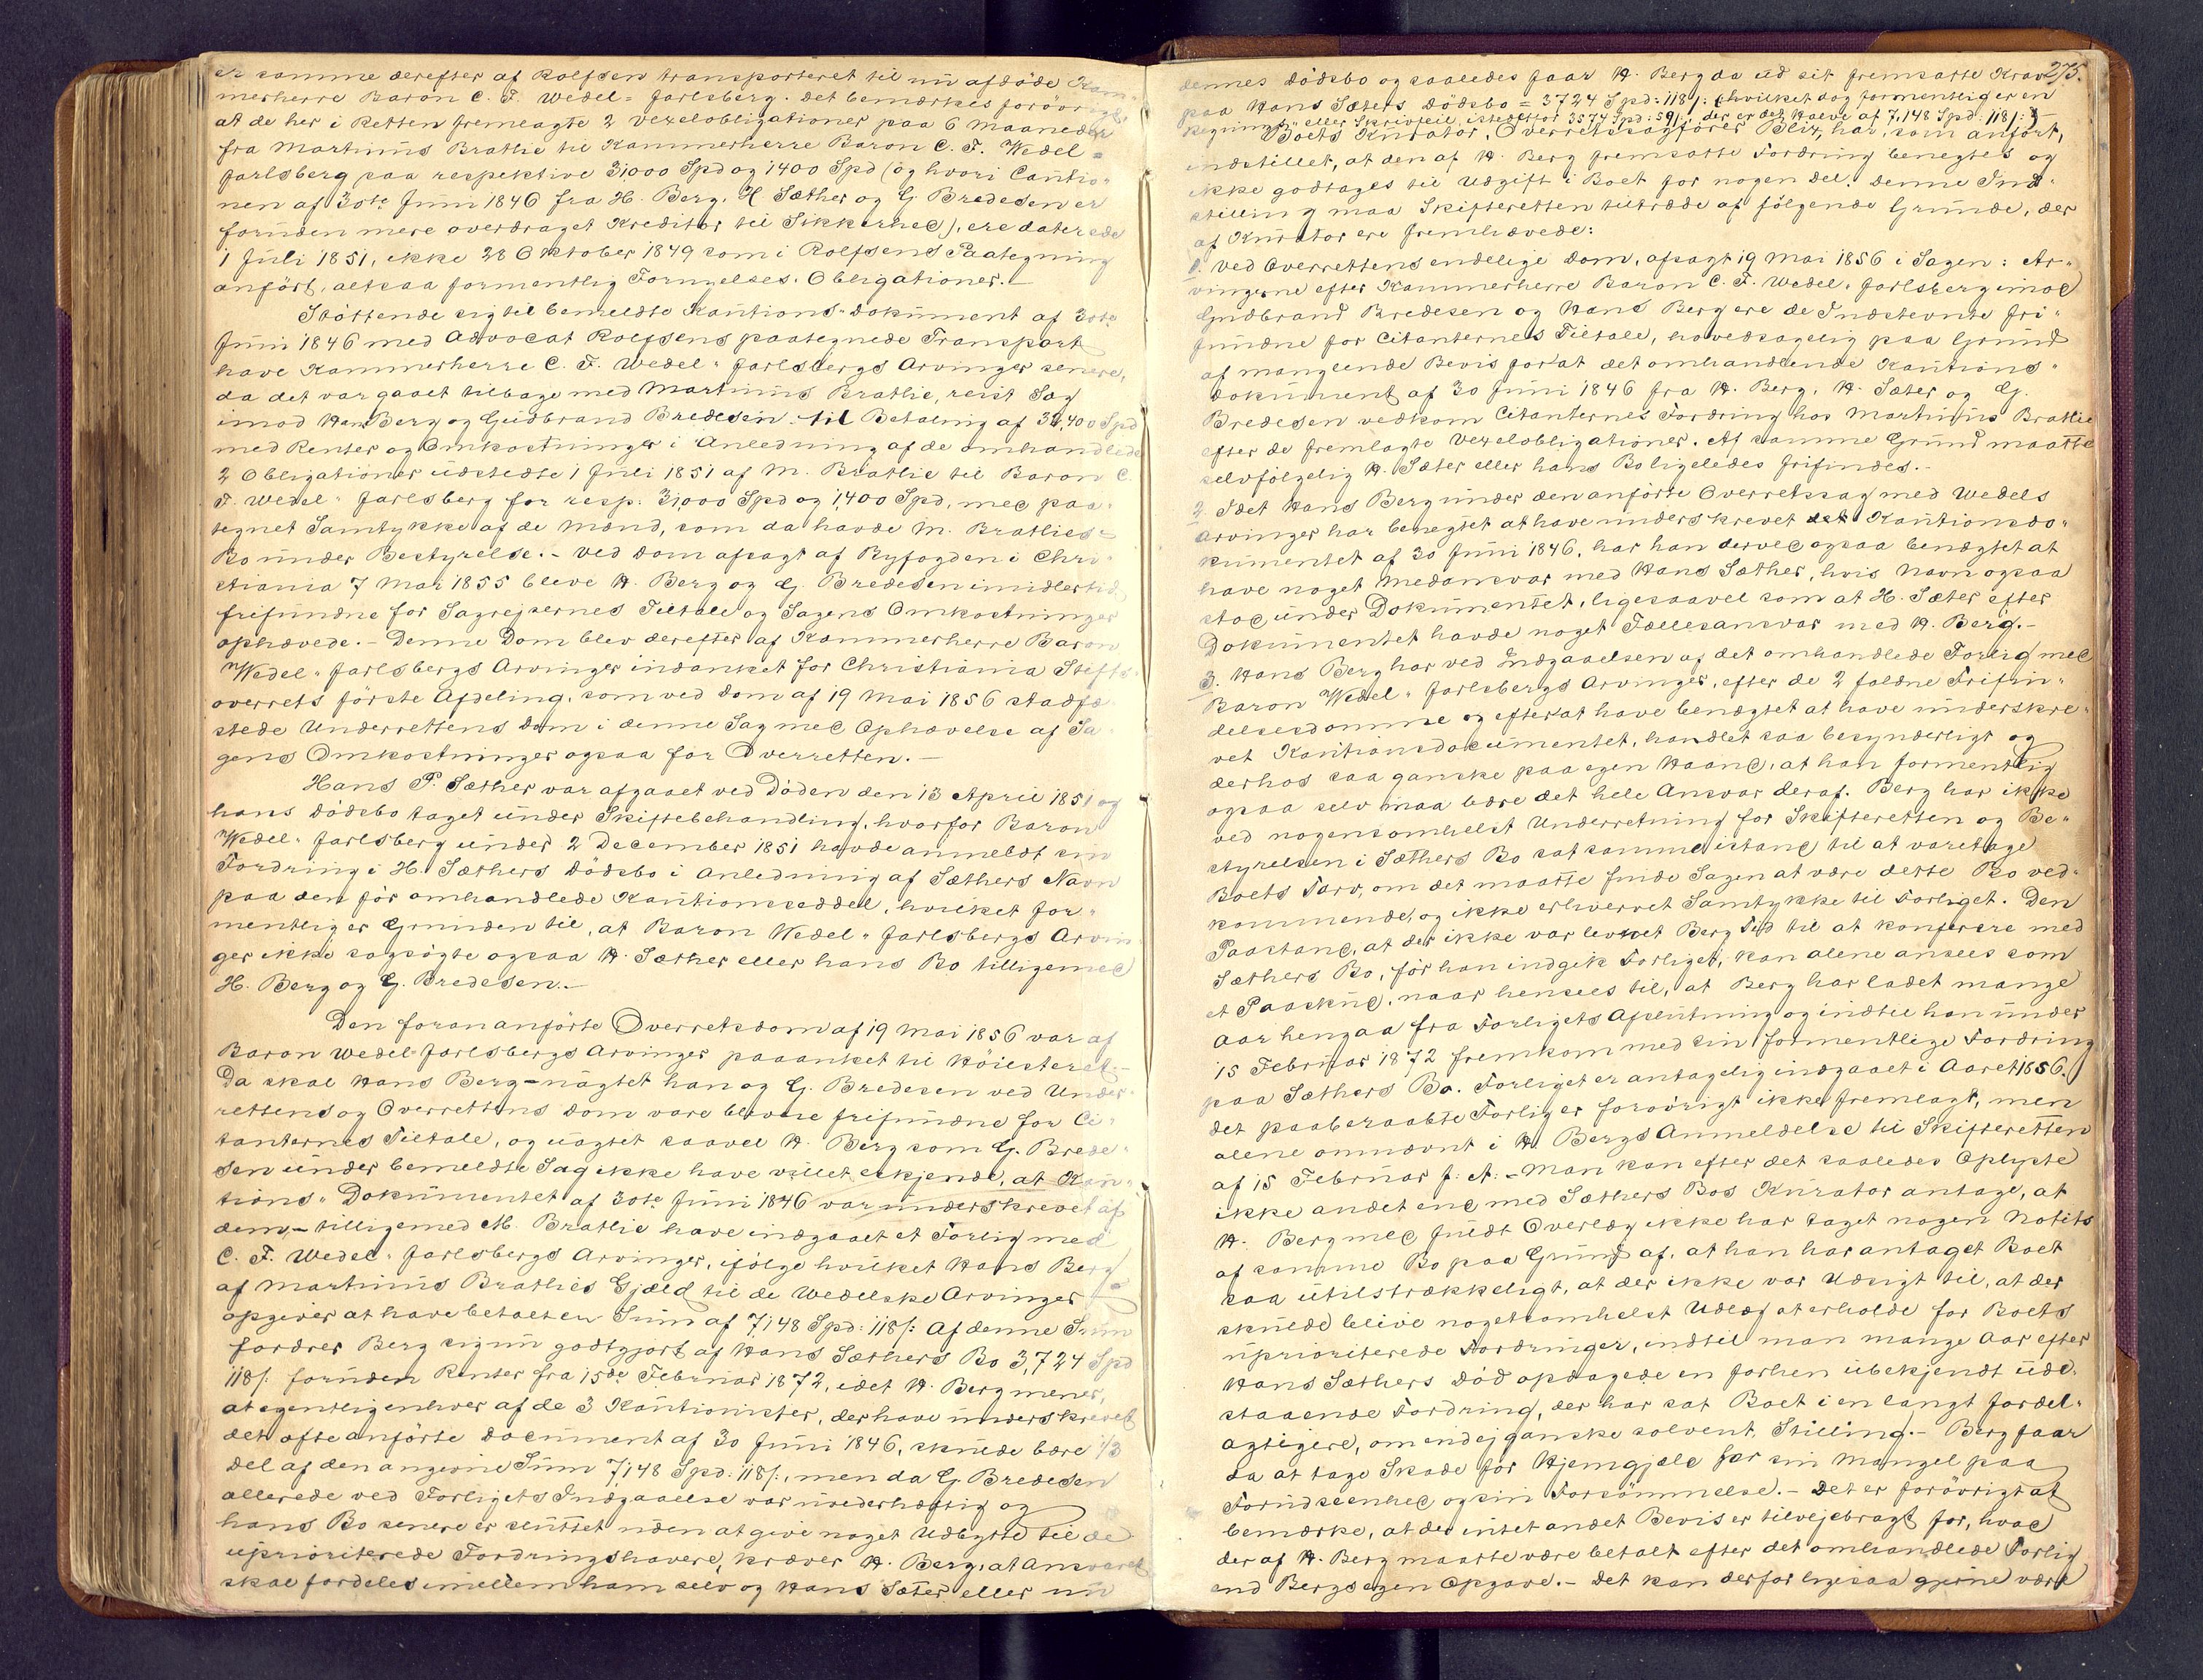 er samme derefter af Rolfsen transporteret til nu afdøde Kam-
merherre Baron C. F. Wedel-Jarlsberg. Det bemærkes forøvrigt,
at de her i Retten fremlagte 2 Vexelobligationer paa 6 Maaneder
fra Martinius Brathie til Kammerherre Baron C. F. Wedel-
Jarlsberg paa respektive 31,000 Spd og 1400 Spd (og hvori Cautio-
nen af 30te Juni 1846 fra H. Berg, H Sæther og G. Bredesen er
foruden mere overdraget Kreditor til Sikkerhed), ere daterede
1 Juli 1851, ikke 28 Oktober 1849 som i Rolfsens Paategning
anført, altsaa formentlig Fornyelses-Obligationer.-
Støttende sig til bemeldte Kautions-Dokument af 30te
Juni 1846 med Advocat Rolfsens paategnede Transport
have Kammerherre C. F. Wedel-Jarlsbergs Arvinger senere,
da det var gaaet tilbage med Martinius Brathie, reist Sag
imod Hans Berg og Gudbrand Bredesen til Betaling af 32,400 Spd
med Renter og Omkostninger i Anledning af de omhandlede
2 Obligationer udstedte 1 Juli 1851 af M. Brathie til Baron C.
F. Wedel-Jarlsberg for resp. 31,000 Spd og 1,400 Spd, med paa-
tegnet Samtykke af de Mænd, som da havde M. Brathies
Bo under Bestyrelse.- Ved Dom afsagt af Byfogden i Chri-
stiania 7 Mar 1855 bleve H. Berg og G. Bredesen imidlertid
frifundne for Sagrejsernes Tiltale og Sagens Omkostninger
ophævede.- Denne Dom blev derefter af Kammerherre Baron
Wedel-Jarlsbergs Arvinger indanket for Christiania Stifts-
overrets første Afdeling, som ved Dom af 19 Mai 1856 stadfæ-
stede Underrettens Dom i denne Sag med Ophævelse af Sa-
gens Omkostninger ogsaa for Overretten.-
Hans P. Sæther var afgaaet ved Døden den 13 April 1851 og
hans Dødsbo taget under Skiftebehandling, hvorfor Baron
Wedel-Jarlsberg under 2 December 1851 havde anmeldt sin
Fordring i H. Sæthers Dødsbo i Anledning af Sæthers Navn
paa den før omhandlede Kautionsseddel, hvilket for-
mentlig er Grunden til, at Baron Wedel-Jarlsbergs Arvin-
ger ikke sagsøgte ogsaa H. Sæther eller hans Bo tilligemed
H. Berg og G. Bredesen.-
Den foran anførte Overretsdom af 19 Mai 1856 var af
Baron Wedel-Jarlsbergs Arvinger paaanket til Höiesteret.-
Da skal Hans Berg - uagtet han og G. Bredesen ved Under-
rettens og Overrettens Dom vare blevne frifundne for Ci-
tanternes Tiltale, og uagtet saavel H. Berg som G. Brede-
sen under bemeldte Sag ikke have villet erkjende, at Kau-
tions-Dokumentet af 30te Juni 1846 var underskrevet af
dem,- tilligemed M. Brathie have indgaaet et Forlig med
C. F. Wedel-Jarlsbergs Arvinger, ifølge hvilket Hans Berg
af Martinius Brathies Gjæld til de Wedelske Arvinger
opgiver at have betalt en Sum af 7,148 Spd: 118/: Af denne Sum
fordrer Berg sig nu godtgjort af Hans Sæthers Bo 3,724 Spd
118/: foruden Renter fra 15de Februar 1872, idet H. Berg mener,
at egentlig enhver af de 3 Kautionister, der have underskrevet
det ofte anførte Document af 30 Juni 1846, skulde bære 1/3
Del af den angivne Sum 7,148 Spd: 118/:, men da G. Bredesen
allerede ved Forligets Indgaaelse var uvederhæftig og
hans Bo senere er sluttet uden at give noget Udbytte til de
uprioriterede Fordringshavere, kræver H. Berg, at Ansvaret
skal fordeles imellem ham selv og Hans Sæter eller nu
275.
dennes Dødsbo og saaledes faar H. Berg da ud sit fremsatte Krav
paa Hans Sæters Dødsbo = 3724 Spd: 118/: (hvilket dog formentlig er en
Regnings- eller Skrivfeil, istedetfor 3574 Spd: 59/:, der er det Halve af 7,148 Spd: 118/:)-
Boets Kurator, Overretssagfører Blix, har, som anført,
indstillet, at den af H. Berg fremsatte Fordring benegtes og
ikke godtages til Udgift i Boet for nogen Del. Denne Ind-
stilling maa Skifteretten tiltræde af følgende Grunde, der
af Kurator ere fremhævede:
1. Ved Overrettens endelige Dom, afsagt 19 Mai 1856 i Sagen: Ar-
vingerne efter Kammerherre Baron C. F. Wedel-Jarlsberg imod
Gudbrand Bredesen og Hans Berg ere de Indstevnte fri-
fundne for Citanternes Tiltale, hovedsagelig paa Grund
af manglende Bevis for at det omhandlende Kautions-
dokument af 30 Juni 1846 fra H. Berg, H. Sæter og G.
Bredesen vedkom Citanternes Fordring hos Martinius Brathie
efter de fremlagte Vexelobligationer. Af samme Grund maatte
selvfølgelig H. Sæter eller hans Bo ligeledes frifindes.-
2. Idet Hans Berg under den anførte Overretssag med Wedels
Arvinger har benegtet at have underskrevet det Kautionsdo-
kumentet af 30 Juni 1846, har han derved ogsaa benægtet at
have noget Medansvar med Hans Sæther, hvis Navn ogsaa
stod under Dokumentet, ligesaavel som at H. Sæter efter
Dokumentet havde noget Fællesansvar med H. Berg.-
3. Hans Berg har ved Indgaaelsen af det omhandlede Forlig med
Baron Wedel-Jarlsbergs Arvinger, efter de 2 faldne Frifin-
delsesdomme og efterat have benægtet at have underskre-
vet Kautionsdocumentet, handlet saa besynderligt og
derhos saa ganske paa egen Haand, at han formentlig
ogsaa selv maa bære det hele Ansvar deraf. Berg har ikke
ved nogensomhelst Underretning for Skifteretten og Be-
styrelsen i Sæthers Bo sat samme istand til at varetage
Boets Tarv, om det maatte finde Sagen at være dette Bo ved-
kommende, og ikke erhvervet Samtykke til Forliget. Den
Paastand, at der ikke var levnet Berg Tid til at konferere med
Sæthers Bo, før han indgik Forliget, kan alene ansees som
et Paaskud, naar hensees til, at Berg har ladet mange
Aar hengaa fra Forligets Afslutning og indtil han under
15 Februar 1872 fremkom med sin formentlige Fordring
paa Sæthers Bo. Forliget er antagelig indgaaet i Aaret 1856.
Det paaberaabte Forlig er forøvrigt ikke fremlagt, men
alene omnævnt i H. Bergs Anmeldelse til Skifteretten
af 15 Februar f: A: - Man kan efter det saaledes Oplyste
ikke andet end med Sæthers Bos Kurator antage, at
H. Berg med fuldt Overlæg ikke har taget nogen Notits
af samme Bo paa Grund af, at han har antaget Boet
saa utilstrækkeligt, at der ikke var Udsigt til, at der
skulde blive nogetsomhelst Udlæg at erholde for Boets
uprioriterede Fordringer, indtil man mange Aar efter
Hans Sæthers Død opdagede en forhen ubekjendt ude-
staaende Fordring, der har sat Boet i en langt fordel-
agtigere, om end ej ganske solvent, Stilling.- Berg faar
da at tage Skade for Hjemgjæld for sin Mangel paa
Forudseenhed og sin Forsømmelse.- Det er forøvrigt at
bemærke, at der intet andet Bevis er tilvejebragt for, hvad
der af H. Berg maatte være betalt efter det omhandlede Forlig
end Bergs egen Opgave.- Det kan derfor ligesaa gjerne være